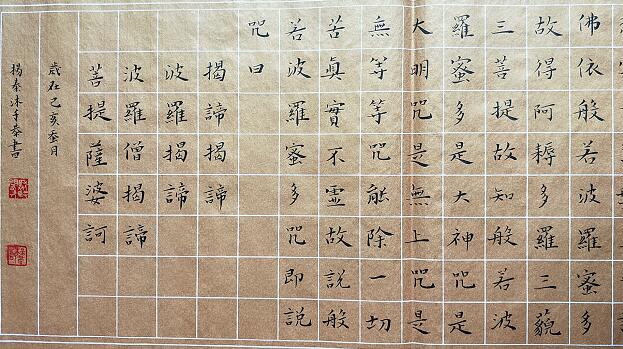 佛依般若波羅蜜多
故得阿耨多羅三藐
三菩提故知般若波
羅蜜多是大神咒是
大明咒是無上咒是
無等等咒能除一切
苦真實不虛故說般
若波羅蜜多咒即説
咒曰
揭諦揭諦
波羅揭諦
波羅僧揭諦
菩提薩婆訶
歲在己亥蚕月
沐手奉書